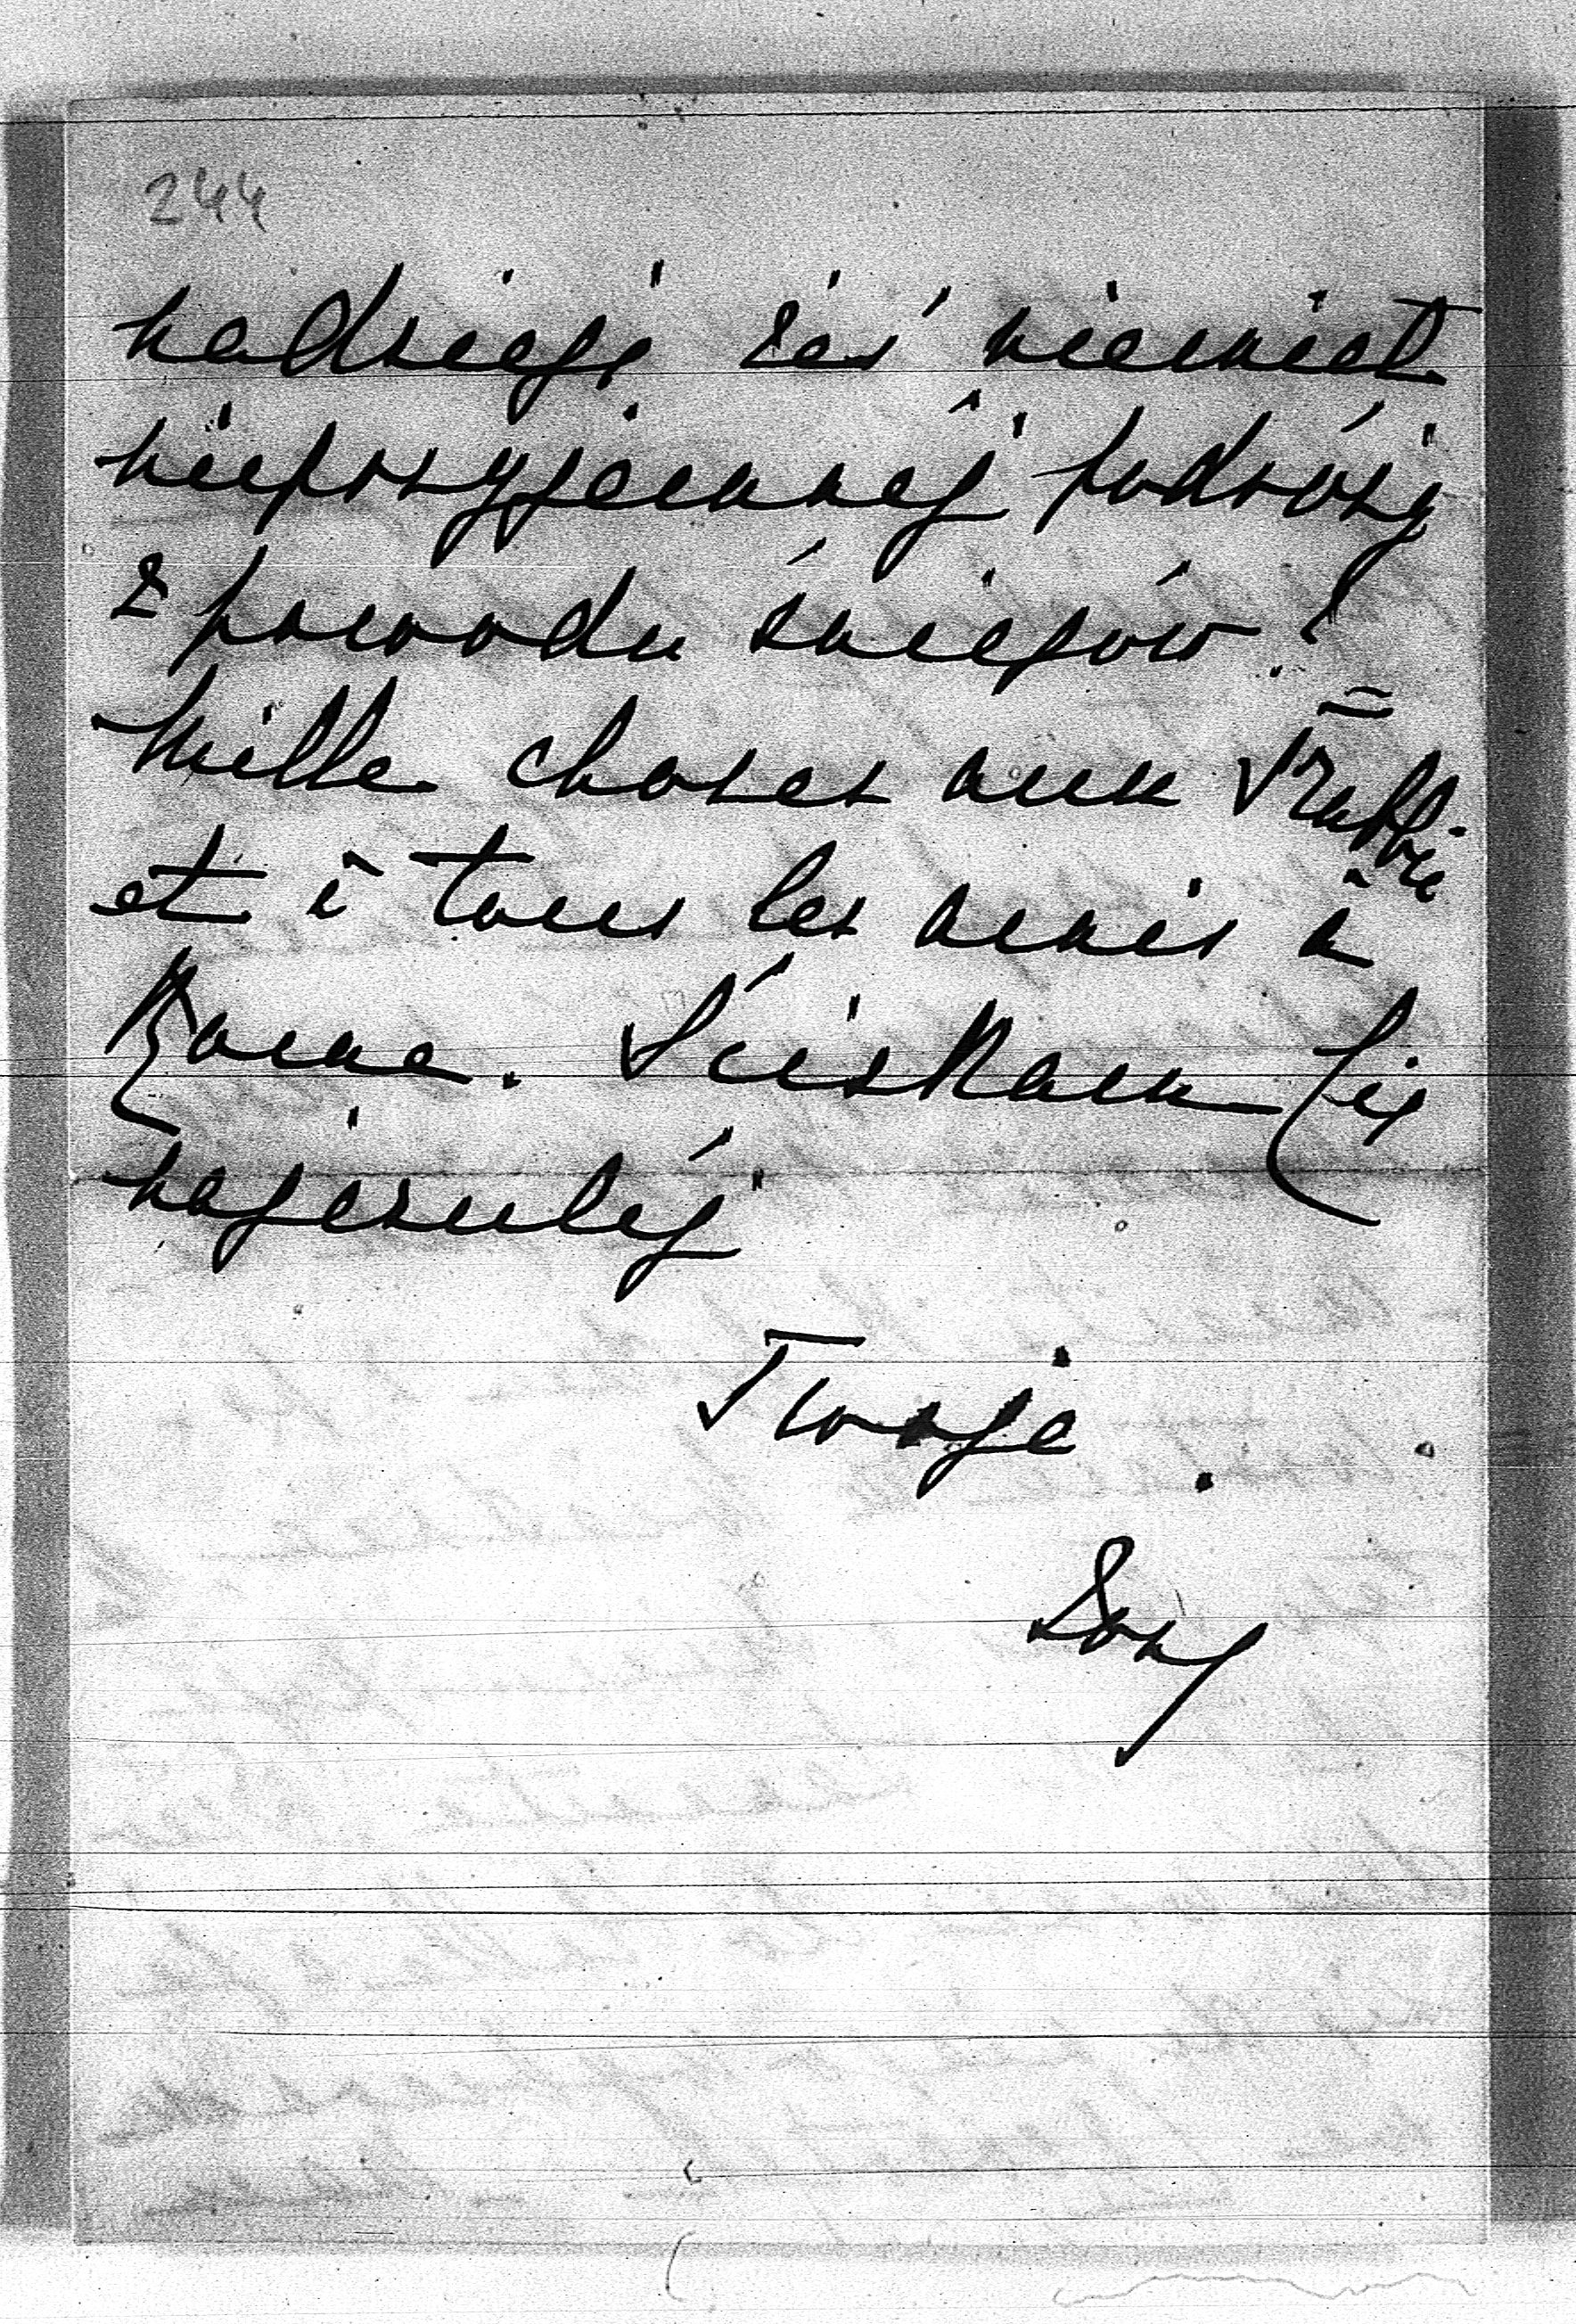 244
nadzieję żeś nie miał
nieprzyjemnej podróży
z powodu śniegów!
Mille choses aux
et à tous les amis à
Rome. Ściskam Cię
najczulej
Twoje